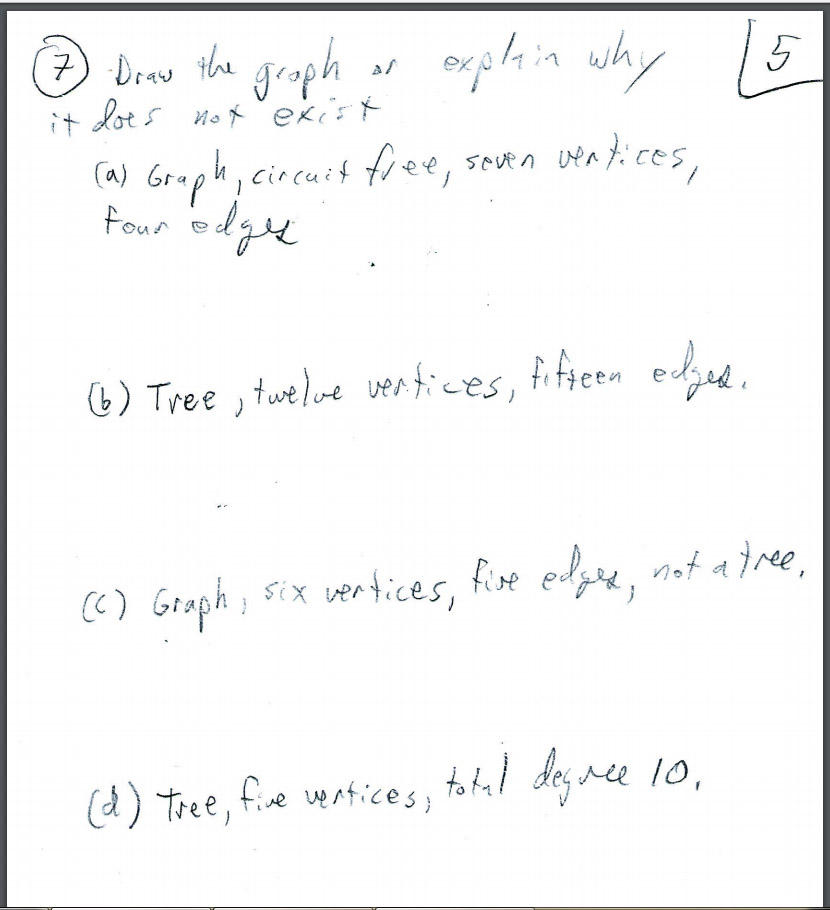 7 Draw the graph or explain why 5
it does not exist
(a) Graph, circuit free, seven vertices,
four edges
(b) Tree, twelve vertices, fifteen edges.
(c) Graph, six vertices, five edges, not a tree.
(d) Tree, five vertices, total degree 10.